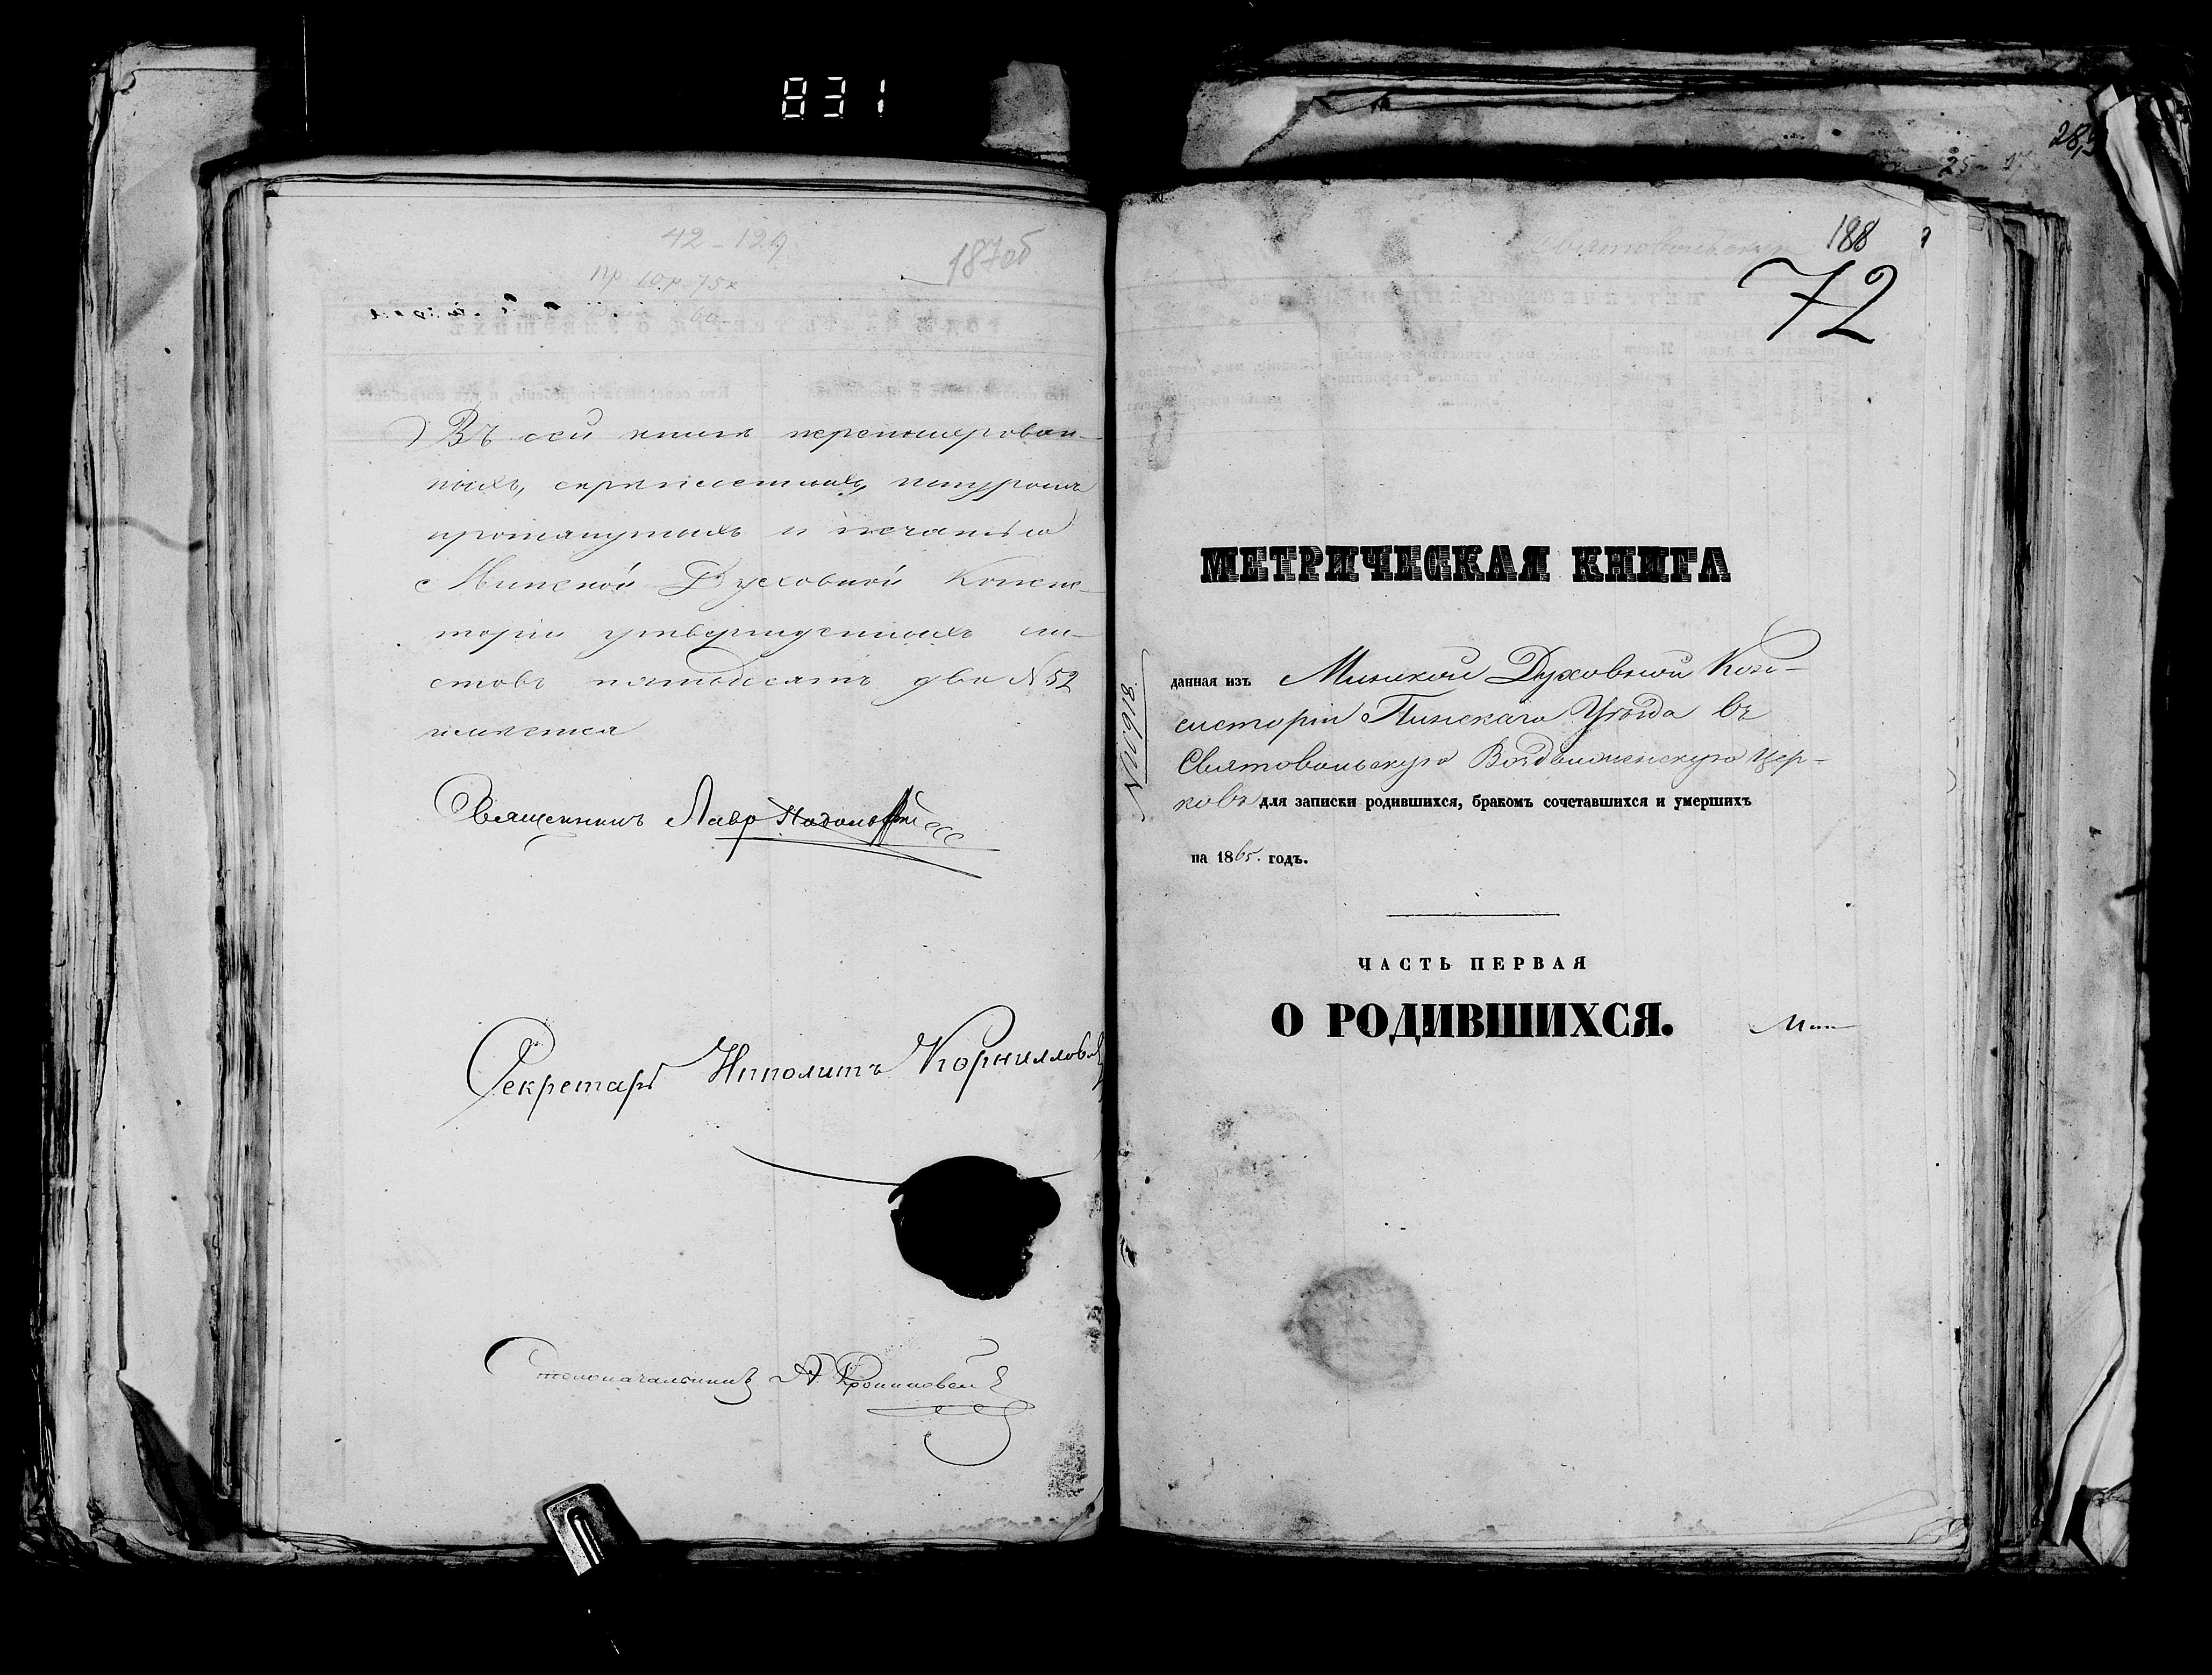 831
42-129
187об
пр 10 р. 75к
Въ сей книгѣ перенумерован-
ныхъ, скрѣпленныхъ, шнуромъ
протянутыхъ и печатью
Минской Духовной Консис-
торіи утвержденныхъ ли-
стовъ пятьдесятъ два N 52
имѣется
Священникъ Лавръ
Секретарь Ипполитъ Корниловъ
Столоначальникъ А.
25
188
72
МЕТРИЧЕСКАЯ КНИГА
данная изъ Минской Духовной Кон-
систоріи Пинскаго Уѣзда въ
Святовольскую Воздвиженскую Цер-
ковь для записки родившихся, бракомъ сочетавшихся и умершихъ
на 1865. годъ.
ЧАСТЬ ПЕРВАЯ
О РОДИВШИХСЯ.
Мин